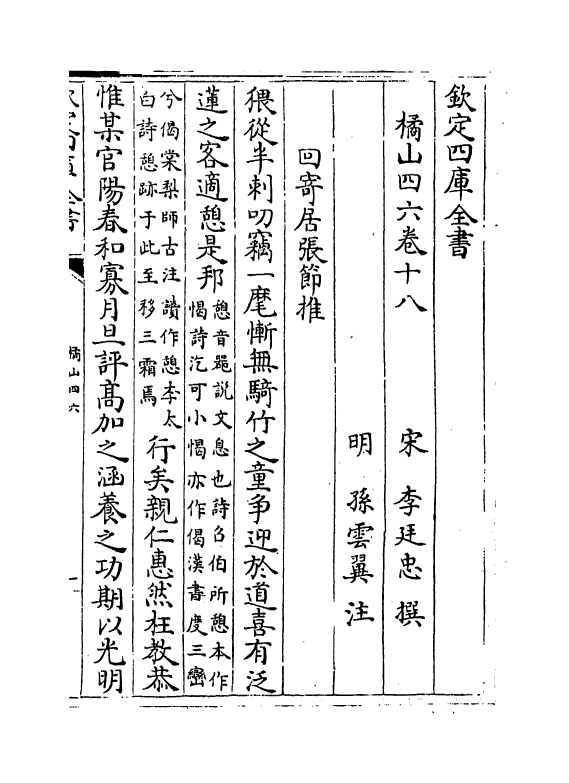 欽定四庫全書
橘山四六卷十八
宋 李廷忠 撰
明 孫雲翼 注
回寄居張節推
猥從半刺叨竊一麾慚無騎竹之童争迎於道喜有泛
蓮之客適憩是邦憩音器説文息也詩召伯所憩本作
愒詩汔可小愒亦作偈漢書度三巒
兮偈棠梨師古注讀作憩李太
白詩憩跡于此至移三霜焉行矣親仁惠然枉教恭
惟某官陽春和寡月旦評髙加之涵養之功期以光明
橘山四六